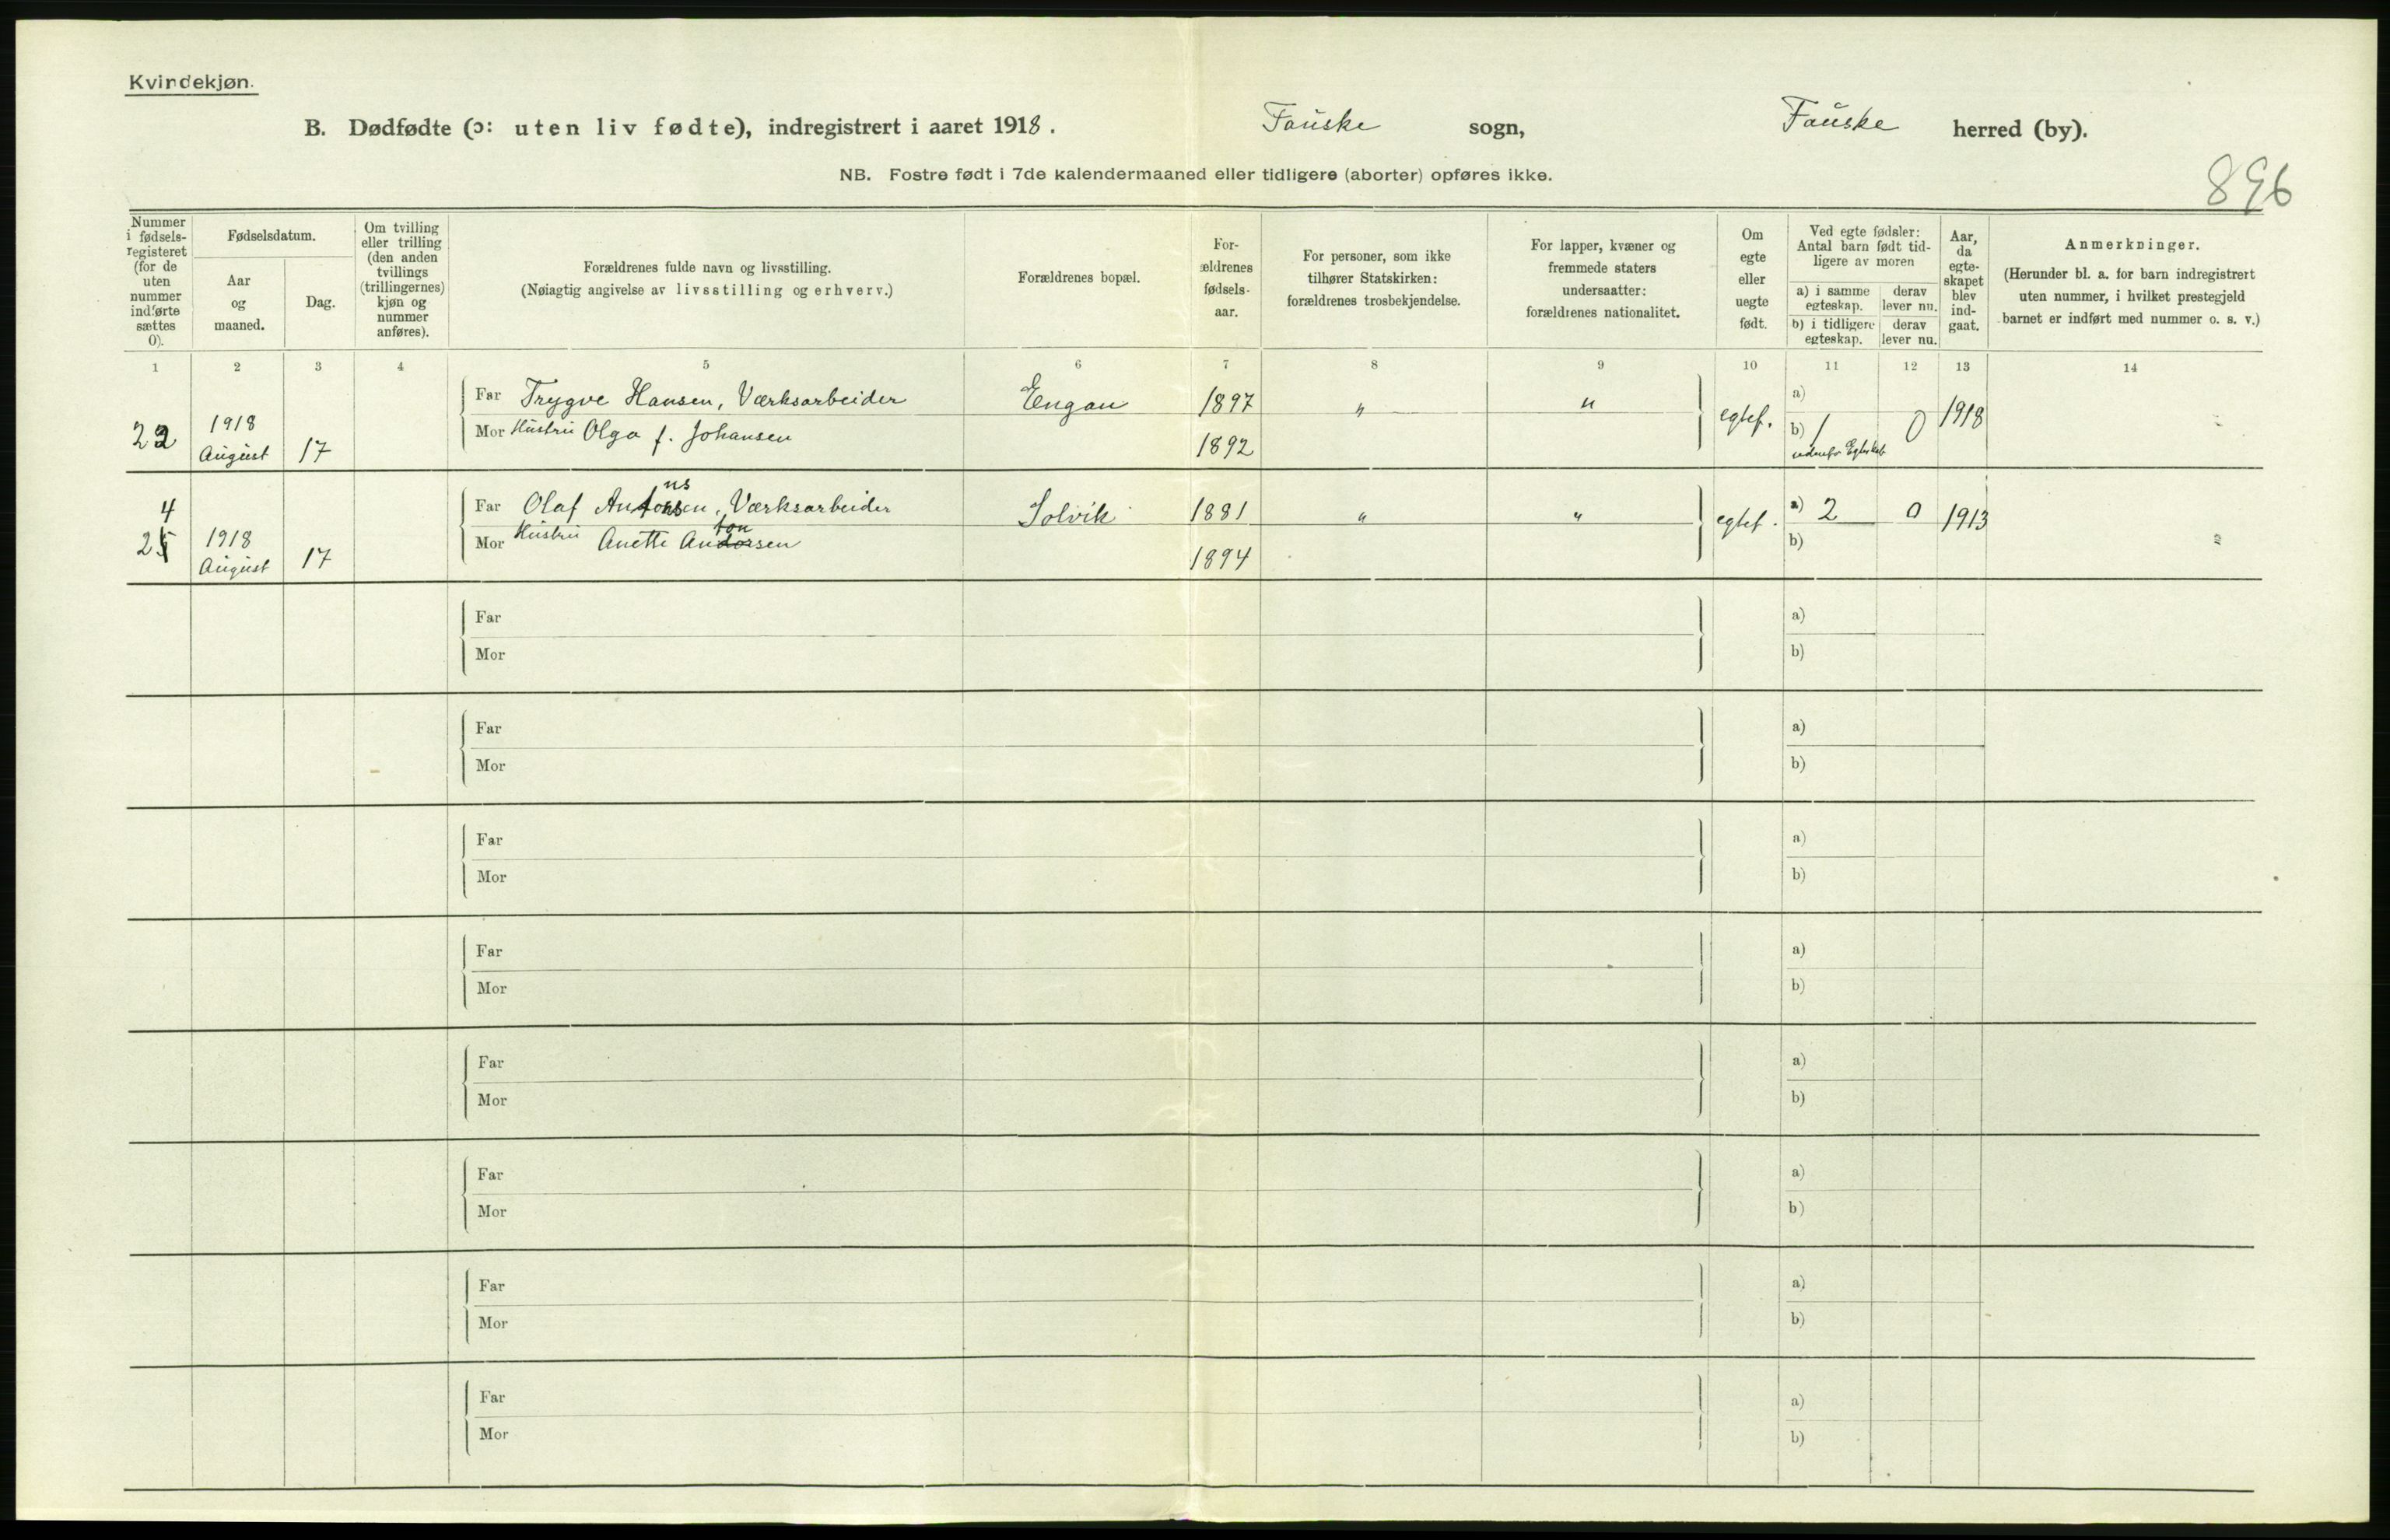 Kvindekjøn.
B. Dødfødte (ɔ: uten liv fødte), indregistrert i aaret 1918. Fauske sogn, Fauske herred (by).
NB. Fostre født i 7de kalendermaaned eller tidligere (aborter) opføres ikke.
896
Nummer i fødsels-registeret (for de uten nummer indførte sættes 0).
Fødselsdatum.
Aar og maaned.
Dag.
Om tvilling eller trilling (den anden tvillings (trillingernes) kjøn og nummer anføres).
Forældrenes fulde navn og livsstilling.
(Nøiagtig angivelse av livsstilling og erhverv.)
Forældrenes bopæl.
For-ældrenes fødsels-aar.
For personer, som ikke tilhører Statskirken: forældrenes trosbekjendelse.
For lapper, kvæner og fremmede staters undersaatter: forældrenes nationalitet.
Om egte eller uegte født.
Ved egte fødsler: Antal barn født tid-ligere av moren
a) i samme egteskap.
derav lever nu.
b) i tidligere egteskap.
derav lever nu.
Aar, da egte-skapet blev ind-gaat.
Anmerkninger.
(Herunder bl. a. for barn indregistrert uten nummer, i hvilket prestegjeld barnet er indført med nummer o. s. v.)
1 2 3 4 5 6 7 8 9 10 11 12 13 14
Far Trygve Hansen, Værksarbeider Engan 1897 " " a)
22 1918 August 17 Mor Hustru Olga f. Johansen 1892 egtef. b) 1 udenfor Egteskab 0 1918
4
ns
Far Olaf Antonsen, Værksarbeider Solvik 1881 " " a) 2 0 1913
ton
25 1918 August 17 Mor Hustru Anette Andorsen 1894 egtef. b)
Far a)
Mor b)
Far a)
Mor b)
Far a)
Mor b)
Far a)
Mor b)
Far a)
Mor b)
Far a)
Mor b)
Far a)
Mor b)
Far a)
Mor b)